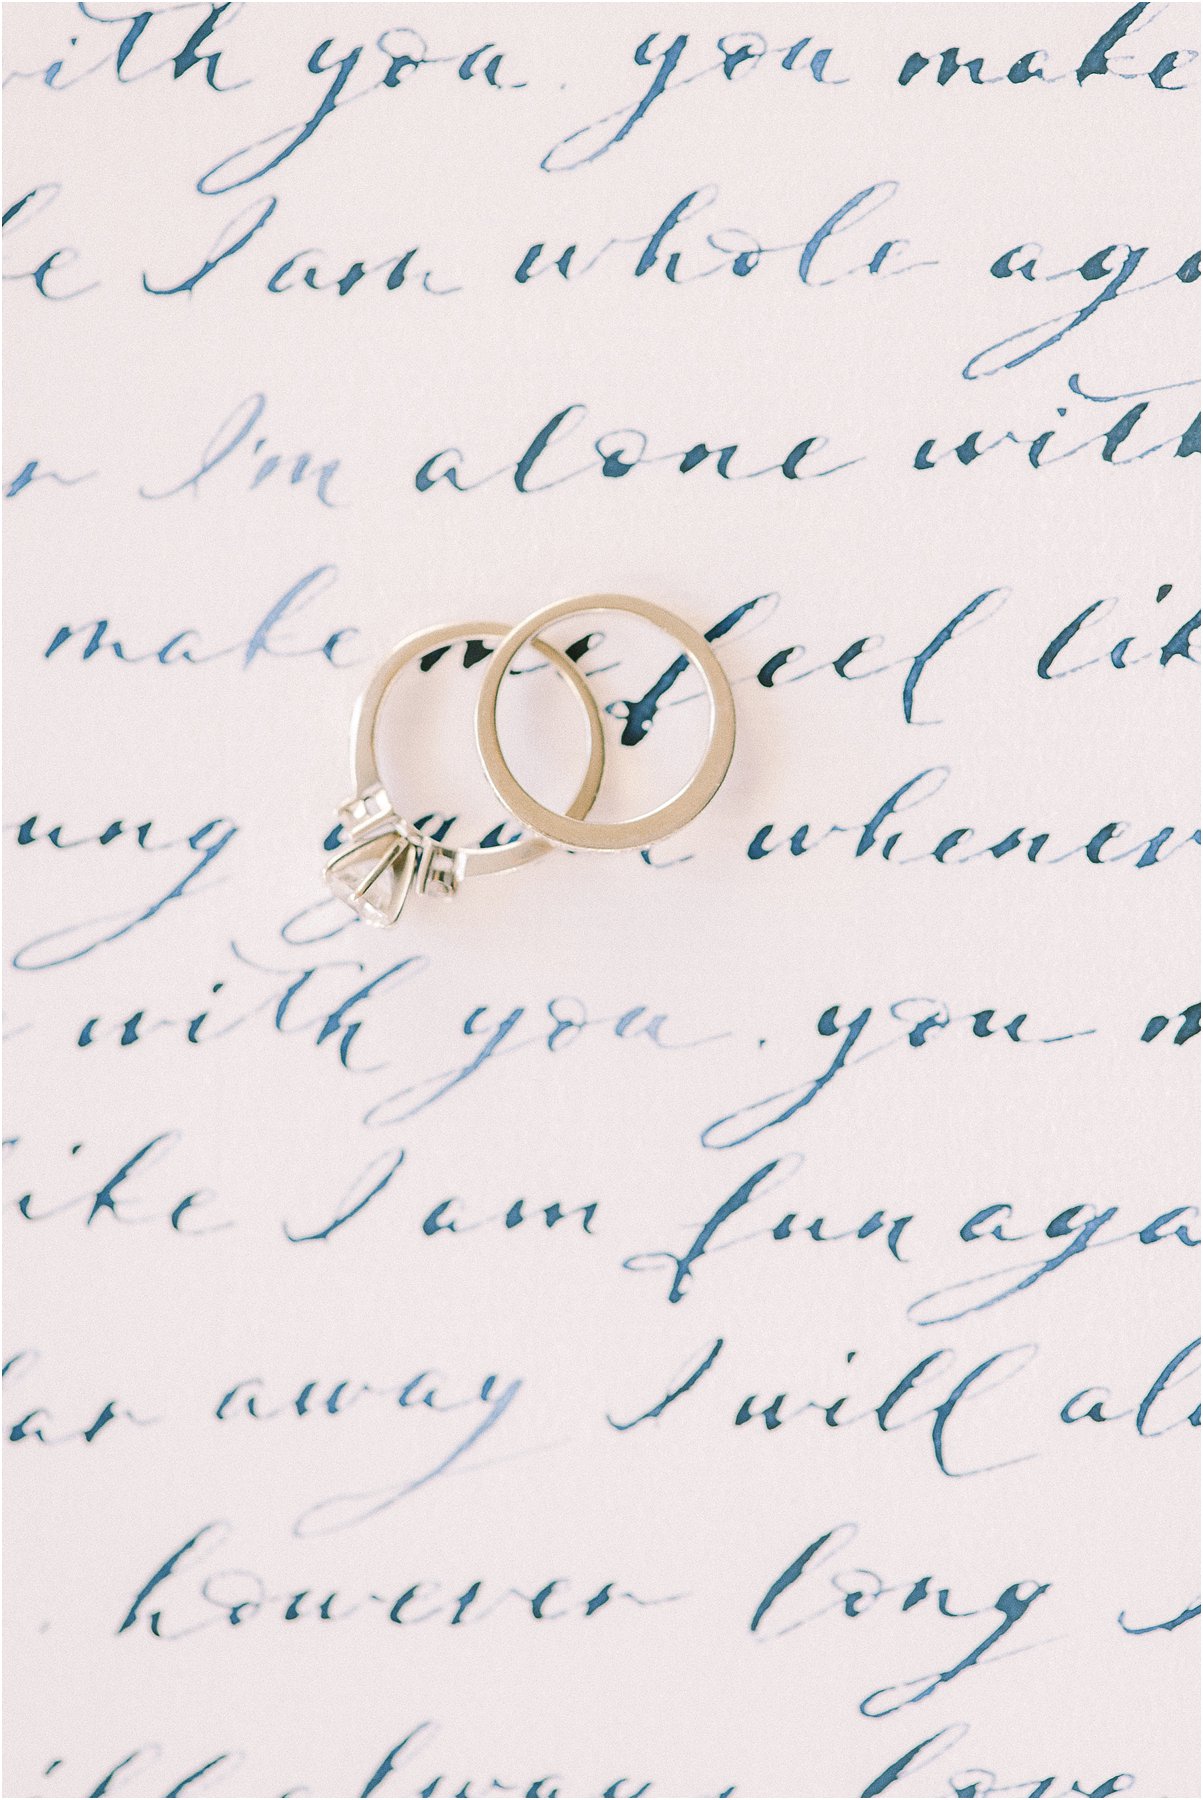 with you. you make
I am whole aga
I'm alone with
make me feel lik
ung again whenev
with you. you m
like I am fun aga
far away I will al
. however long I
will always love